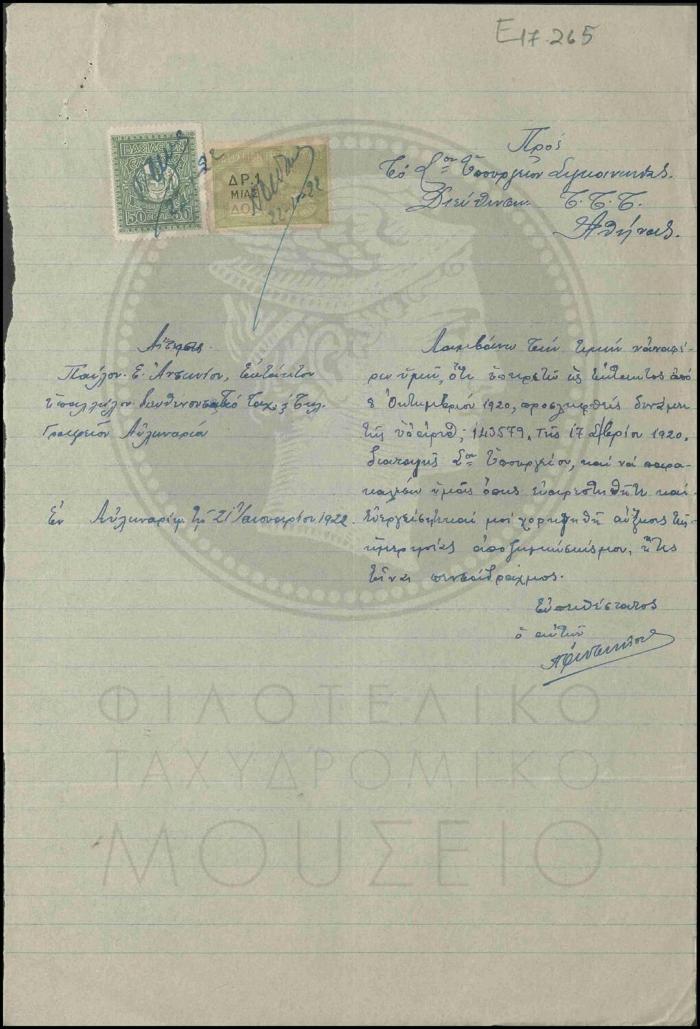 Ε17.265
Πρὸς
Τὸ Σ. Ὑπουργεῖον Συγκοινωνίας
Διεύθυνσιν Τ.Τ.Τ.
Ἀθήνας
ΒΑΣΙΛΕΙΟΝ
50 50
ΔΡ. 1
ΜΙΑΣ
22-1-22
Αἴτησις
Παύλου Ε. Ἀντωνίου, Ἐκτάκτου
ὑπαλλήλου Ταχ. & Τηλ.
Γραφείου Αὐλωναρίου
Ἐν Αὐλωναρίῳ τῇ 21 Ἰανουαρίου 1922
Λαμβάνω τὴν τιμὴν νἀναφέ-
ρω ὑμῖν, ὅτι ὑπηρετῶ ὡς ἔκτακτος ἀπὸ
8 Ὀκτωμβρίου 1920, προσληφθεὶς δυνάμει
τῆς ὑπ' ἀριθ; 143579, τῆς 17 1920.
διαταγῆς Σ. Ὑπουργείου, καὶ νὰ παρα-
καλέσω ὑμᾶς ὅπως εὐαρεστηθῆτε καὶ
μοὶ χορηγηθῇ αὔξησις τῆς
ἡμερησίας, ἥτις
εἶναι πεντάδραχμος.
Εὐπειθέστατος
ὁ αἰτῶν
ΦΙΛΟΤΕΛΙΚΟ
ΤΑΧΥΔΡΟΜΙΚΟ
ΜΟΥΣΕΙΟ